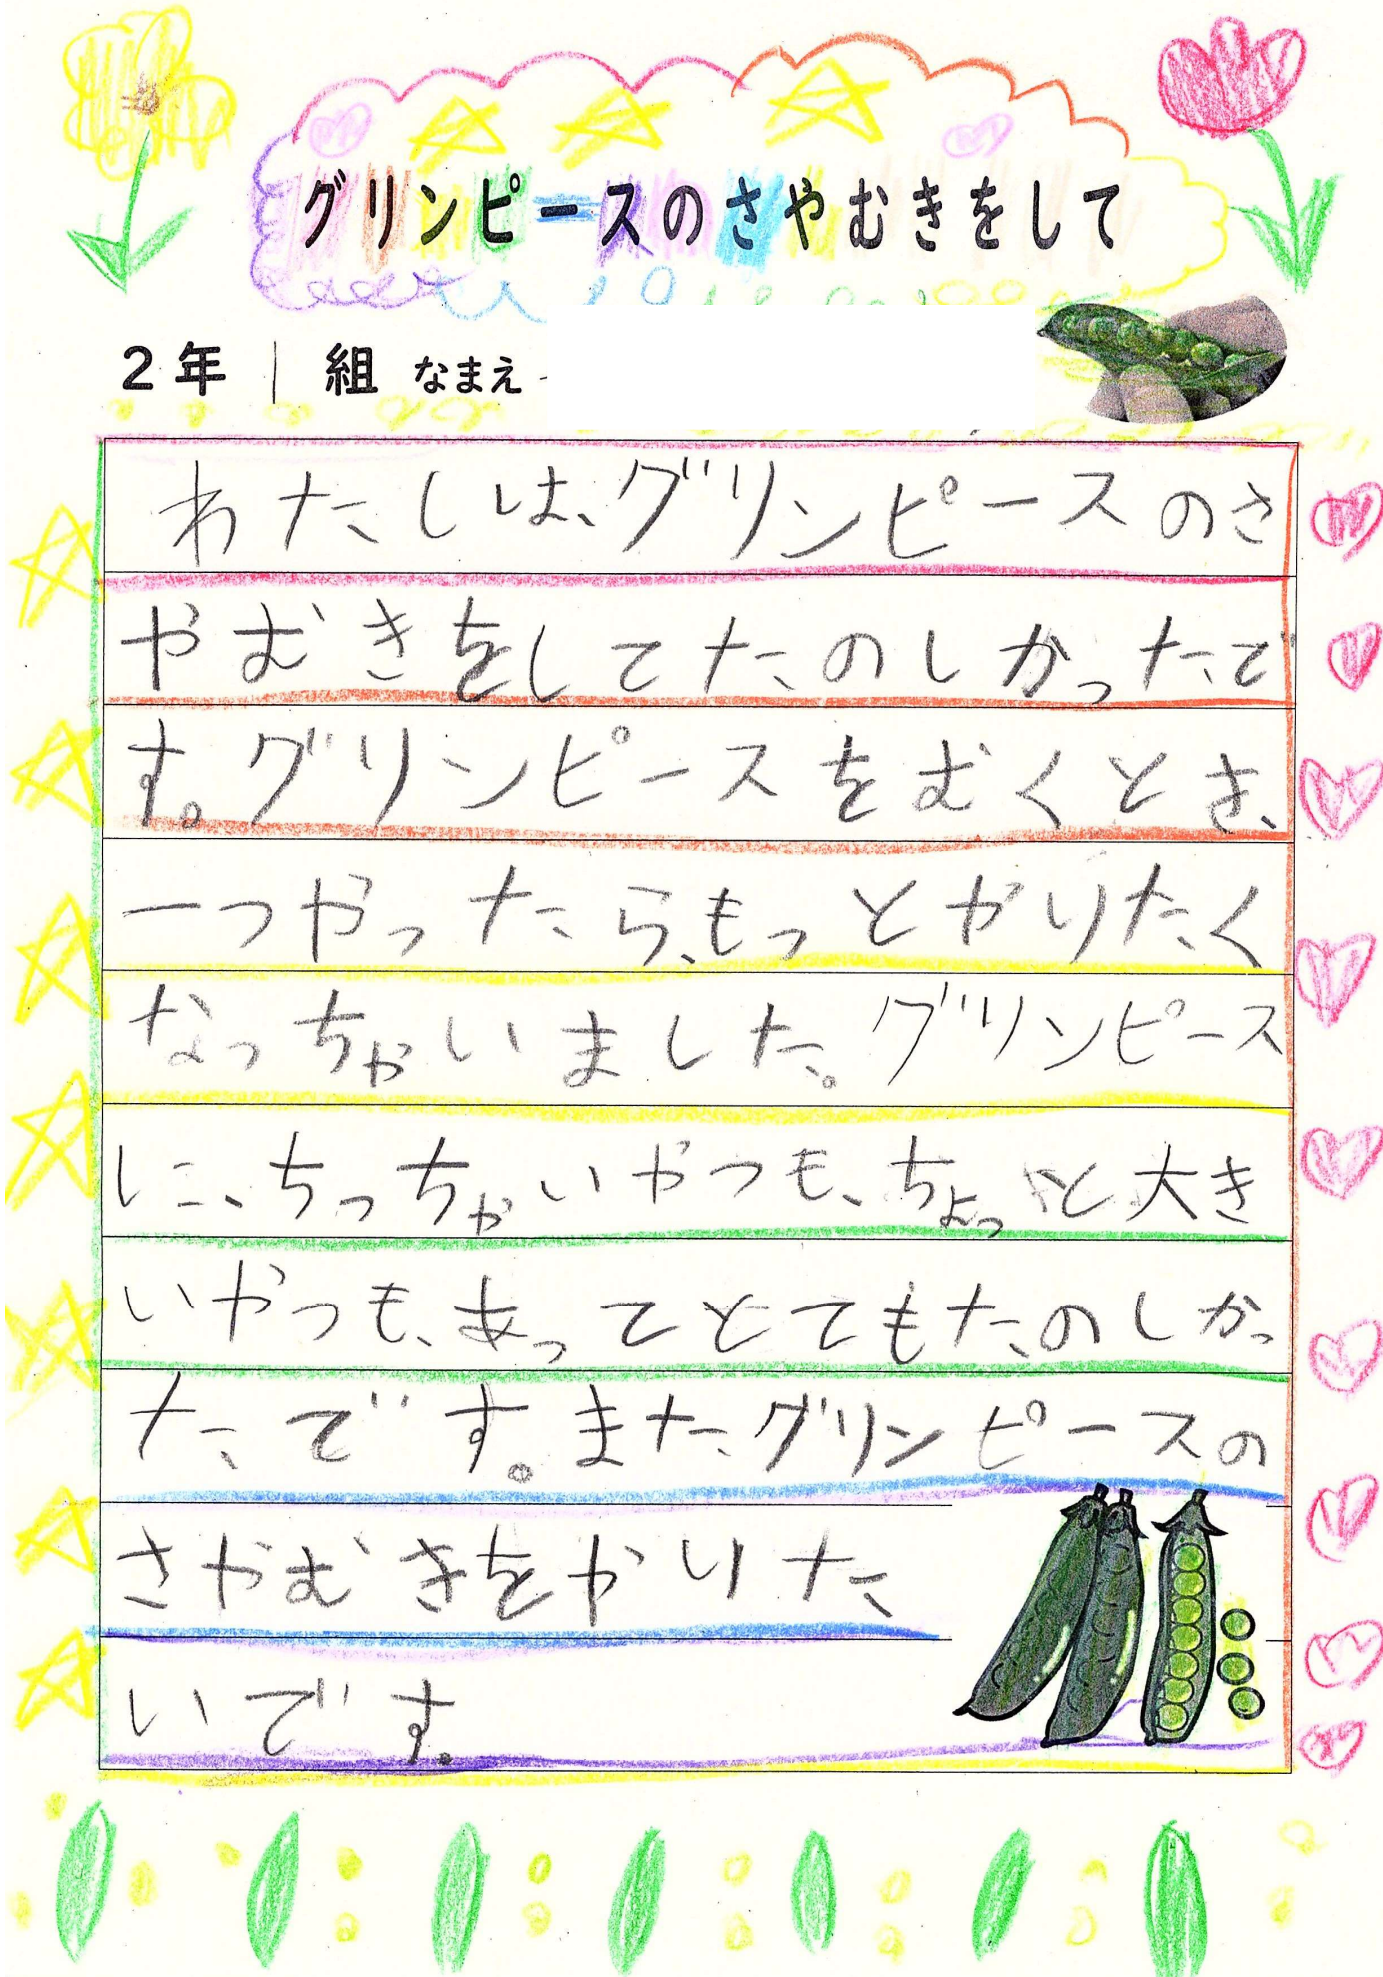 グリンピースのさやむきをして
2年 1 組 なまえ
わたしは、グリンピースのさ
やむきをしてたのしかったで
す。グリンピースをむくとき、
一つやったら、もっとやりたく
なっちゃいました。グリンピース
に、ちっちゃいやつも、ちょっと大き
いやつも、あってとてもたのしかっ
たです。またグリンピースの
さやむきをやりた
いです。